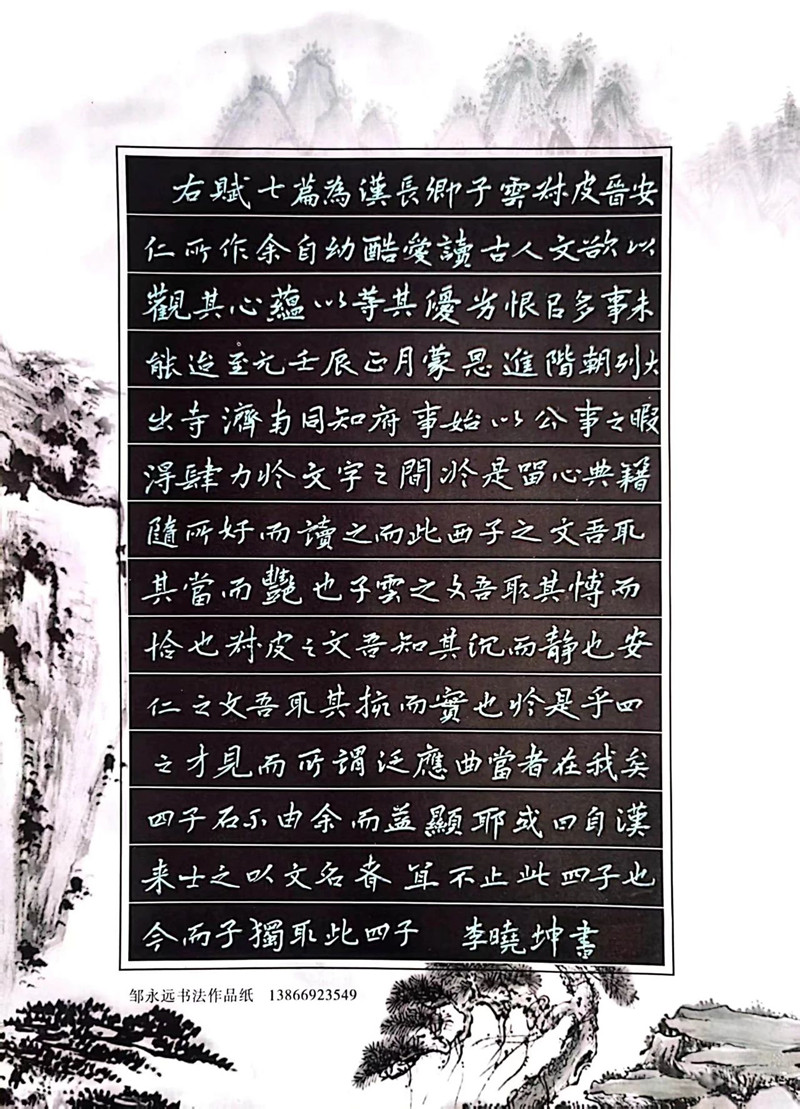 右賦七篇為漢長卿子雲孟皮晉安
仁所作余自幼酷愛讀古人文欲以
觀其心蘊以等其優劣恨吕多事未
能迨至元壬辰正月蒙恩進階朝列大
出寺濟南同知府事始以公事之暇
淂肆力於文字之間於是留心典籍
隨所好而讀之而此西子之文吾取
其當而艷也子雲之文吾取其博而
恰也孟皮之文吾知其沉而静也安
仁之文吾取其掞而實也於是乎四
之才見而所謂泛應曲當者在我矣
四子石不由余而益顯耶或曰自漢
来士之以文名者豈不止此四子也
今而子獨取此四子 李曉坤書
邹永远书法作品纸 13866923549